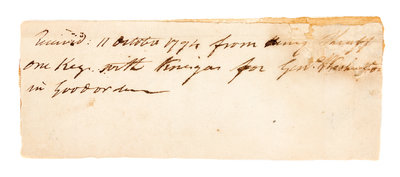 Received. 11 October 1794 from
one Keg. with Vinegar for Genl. Washington
in Good order